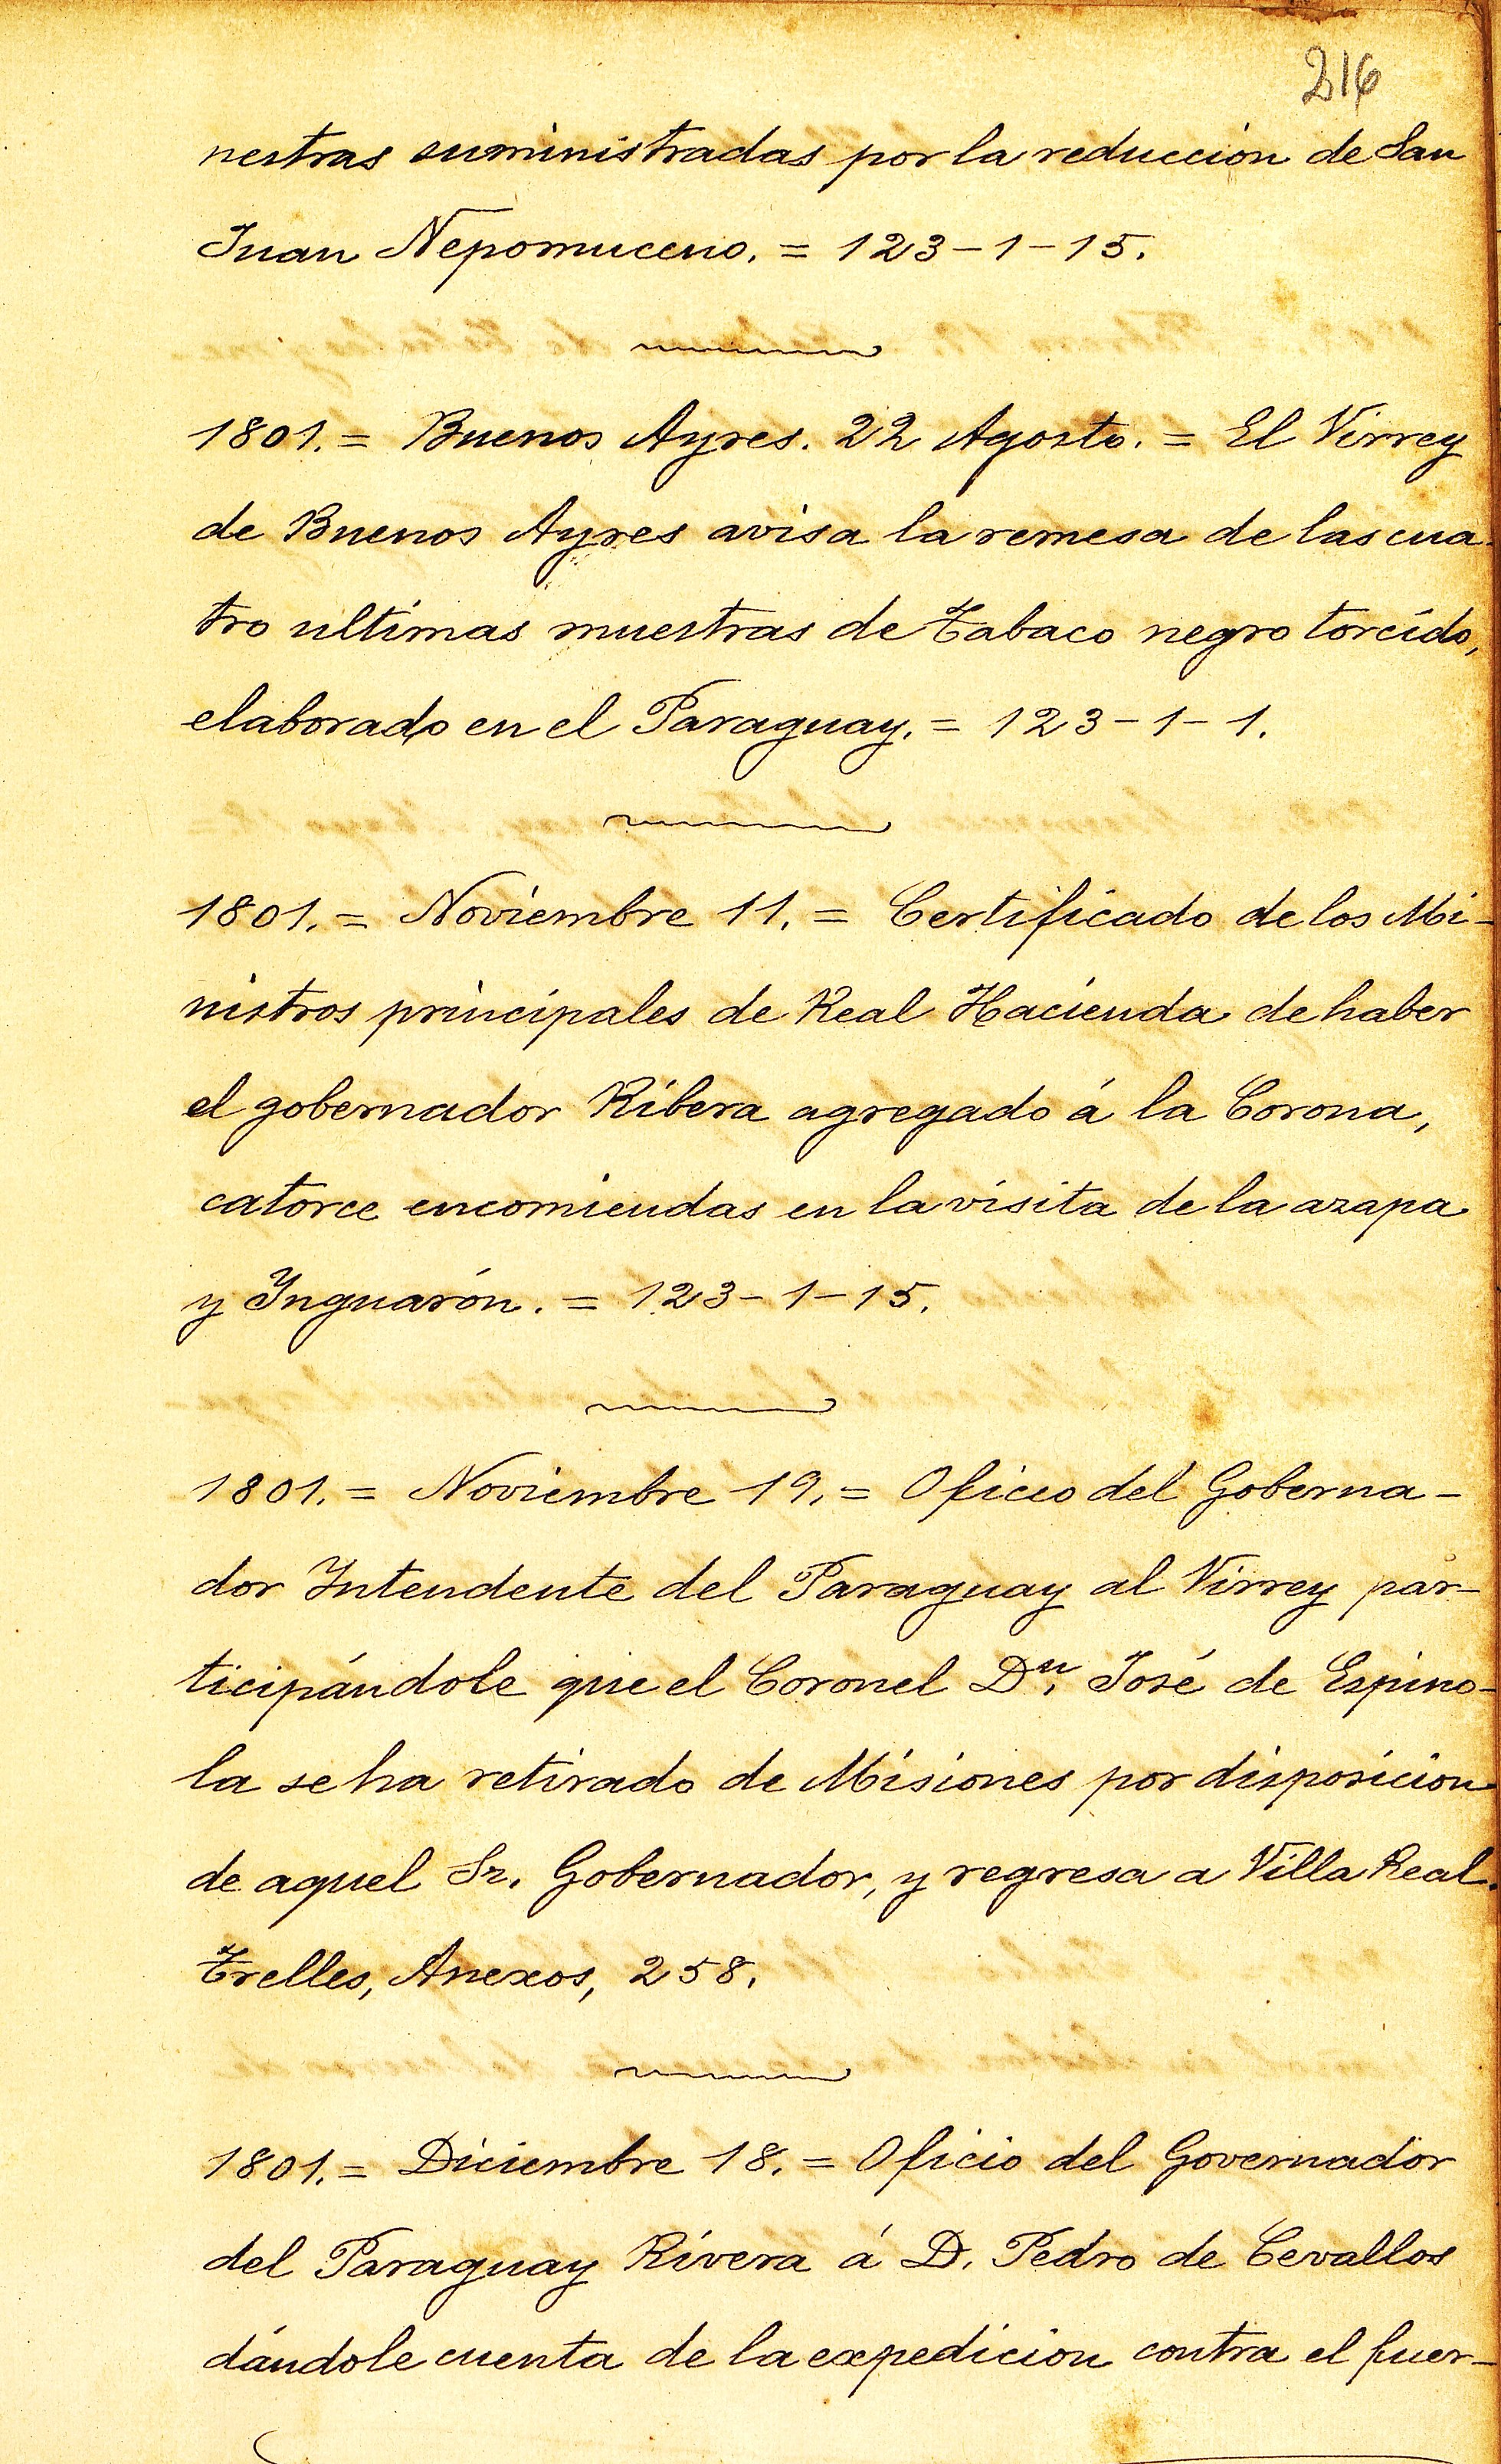 216
nestras suministradas por la reducción de San
Juan Nepomuceno. = 123-1-15.
1801. = Buenos Ayres. 22 Agosto. = El Virrey
de Buenos Ayres avisa la remesa de las cua-
tro ultimas muestras de Tabaco negro torcido,
elaborado en el Paraguay. = 123-1-1.
1801. = Noviembre 11. = Certificado de los Mi-
nistros principales de Real Hacienda de haber
el gobernador Ribera agregado á la Corona,
catorce encomiendas en la visita de la azapa
y Ynguarón. = 123-1-15.
1801. = Noviembre 19. = Oficio del Goberna-
dor Intendente del Paraguay al Virrey par-
ticipándole que el Coronel Dn. José de Espino-
la se ha retirado de Misiones por disposicion
de aquel Sr. Gobernador, y regresa a Villa Real.
Trelles, Anexos, 258.
1801. = Diciembre 18. = Oficio del Governador
del Paraguay Rivera á D. Pedro de Cevallos
dándole cuenta de la expedicion contra el fuer-